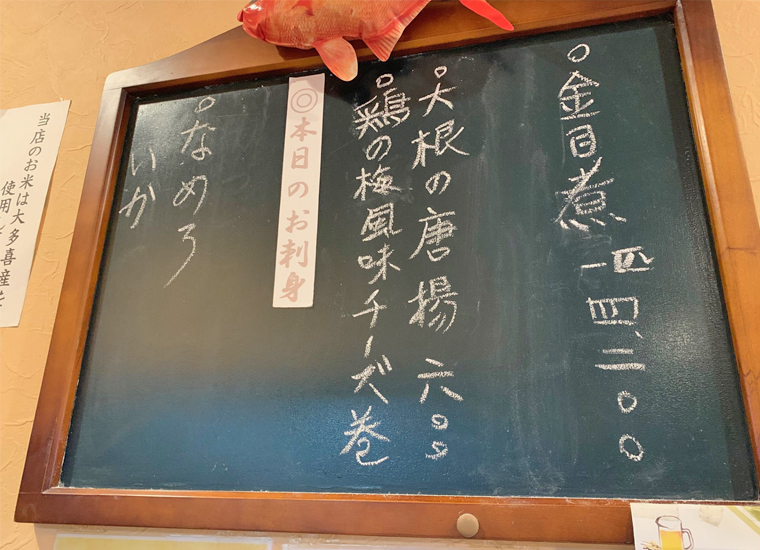 ○金目煮 一匹 四、三〇〇
○大根の唐揚 六〇〇
○鶏の梅風味チーズ巻
◎本日のお刺身
○なめろう
いか
当店のお米は大多喜産を
使用し